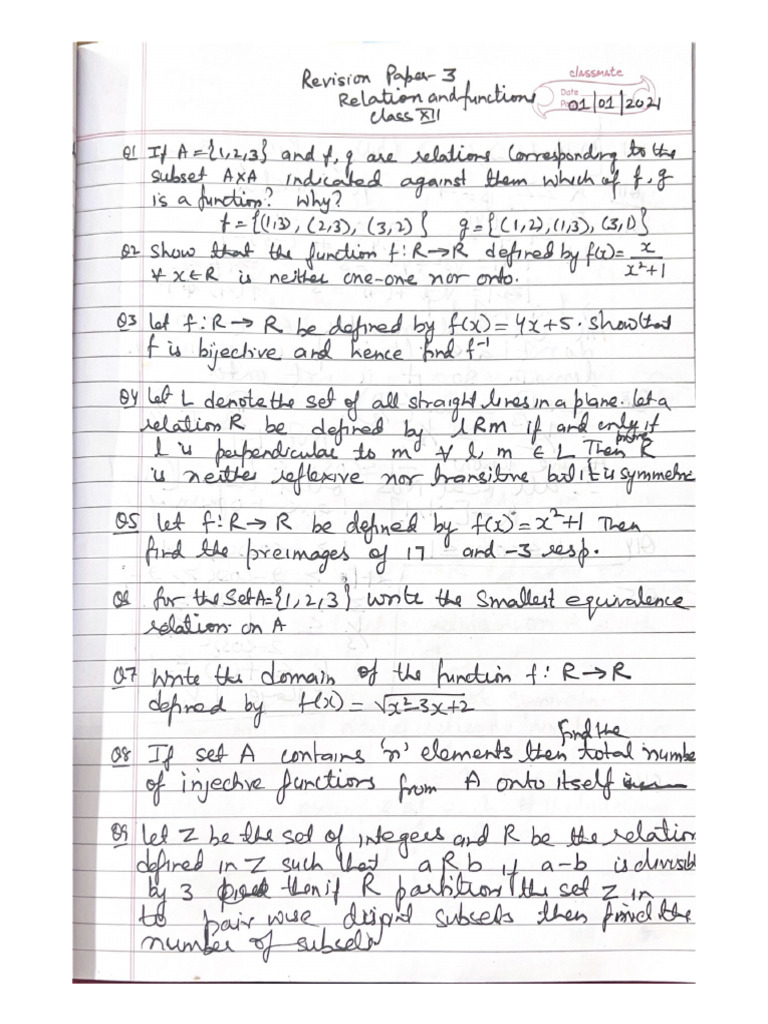 Revision Paper-3
classmate
Relation and functions
Date
01/01/2021
Class XII
Q1 If A={1,2,3} and f, g are relations corresponding to the
subset A×A indicated against them which of f, g
is a function? Why?
f={(1,3), (2,3), (3,2)} g={(1,2),(1,3), (3,1)}
Q2 Show that the function f:R→R defined by f(x)= x/(x²+1)
∀ x∈R is neither one-one nor onto.
Q3 let f:R→R be defined by f(x)=4x+5. Show that
f is bijective and hence find f⁻¹
Q4 Let L denote the set of all straight lines in a plane. let a
relation R be defined by lRm if and only if
l is perpendicular to m ∀ l, m ∈ L Then prove R
is neither reflexive nor transitive but it is symmetric
Q5 let f:R→R be defined by f(x)=x²+1 Then
find the preimages of 17 and -3 resp.
Q6 for the Set A={1,2,3} write the smallest equivalence
relation on A
Q7 Write the domain of the function f: R→R
defined by f(x) = √x²-3x+2
find the
Q8 If set A contains 'n' elements then total numbe
of injective functions from A onto itself
Q9 let Z be the set of integers and R be the relation
defined in Z such that aRb if a-b is divisib
by 3 then if R partition the set Z in
to pair wise disjoint subsets then find the
number of subsets